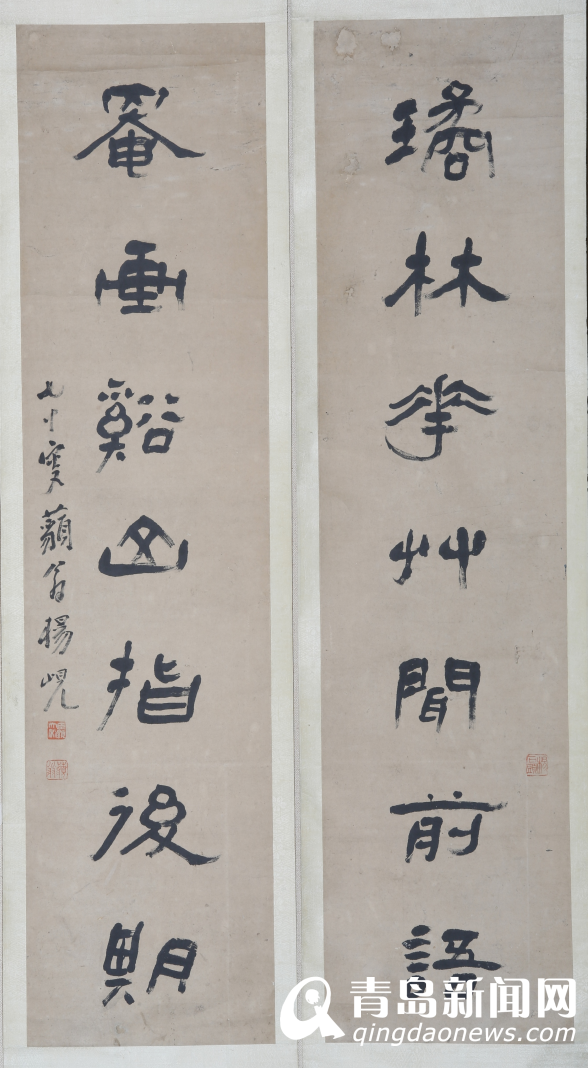 璚林華艸聞前語
罨画谿山指後期
七十叟藐翁楊峴
青岛新闻网
qingdaonews.com